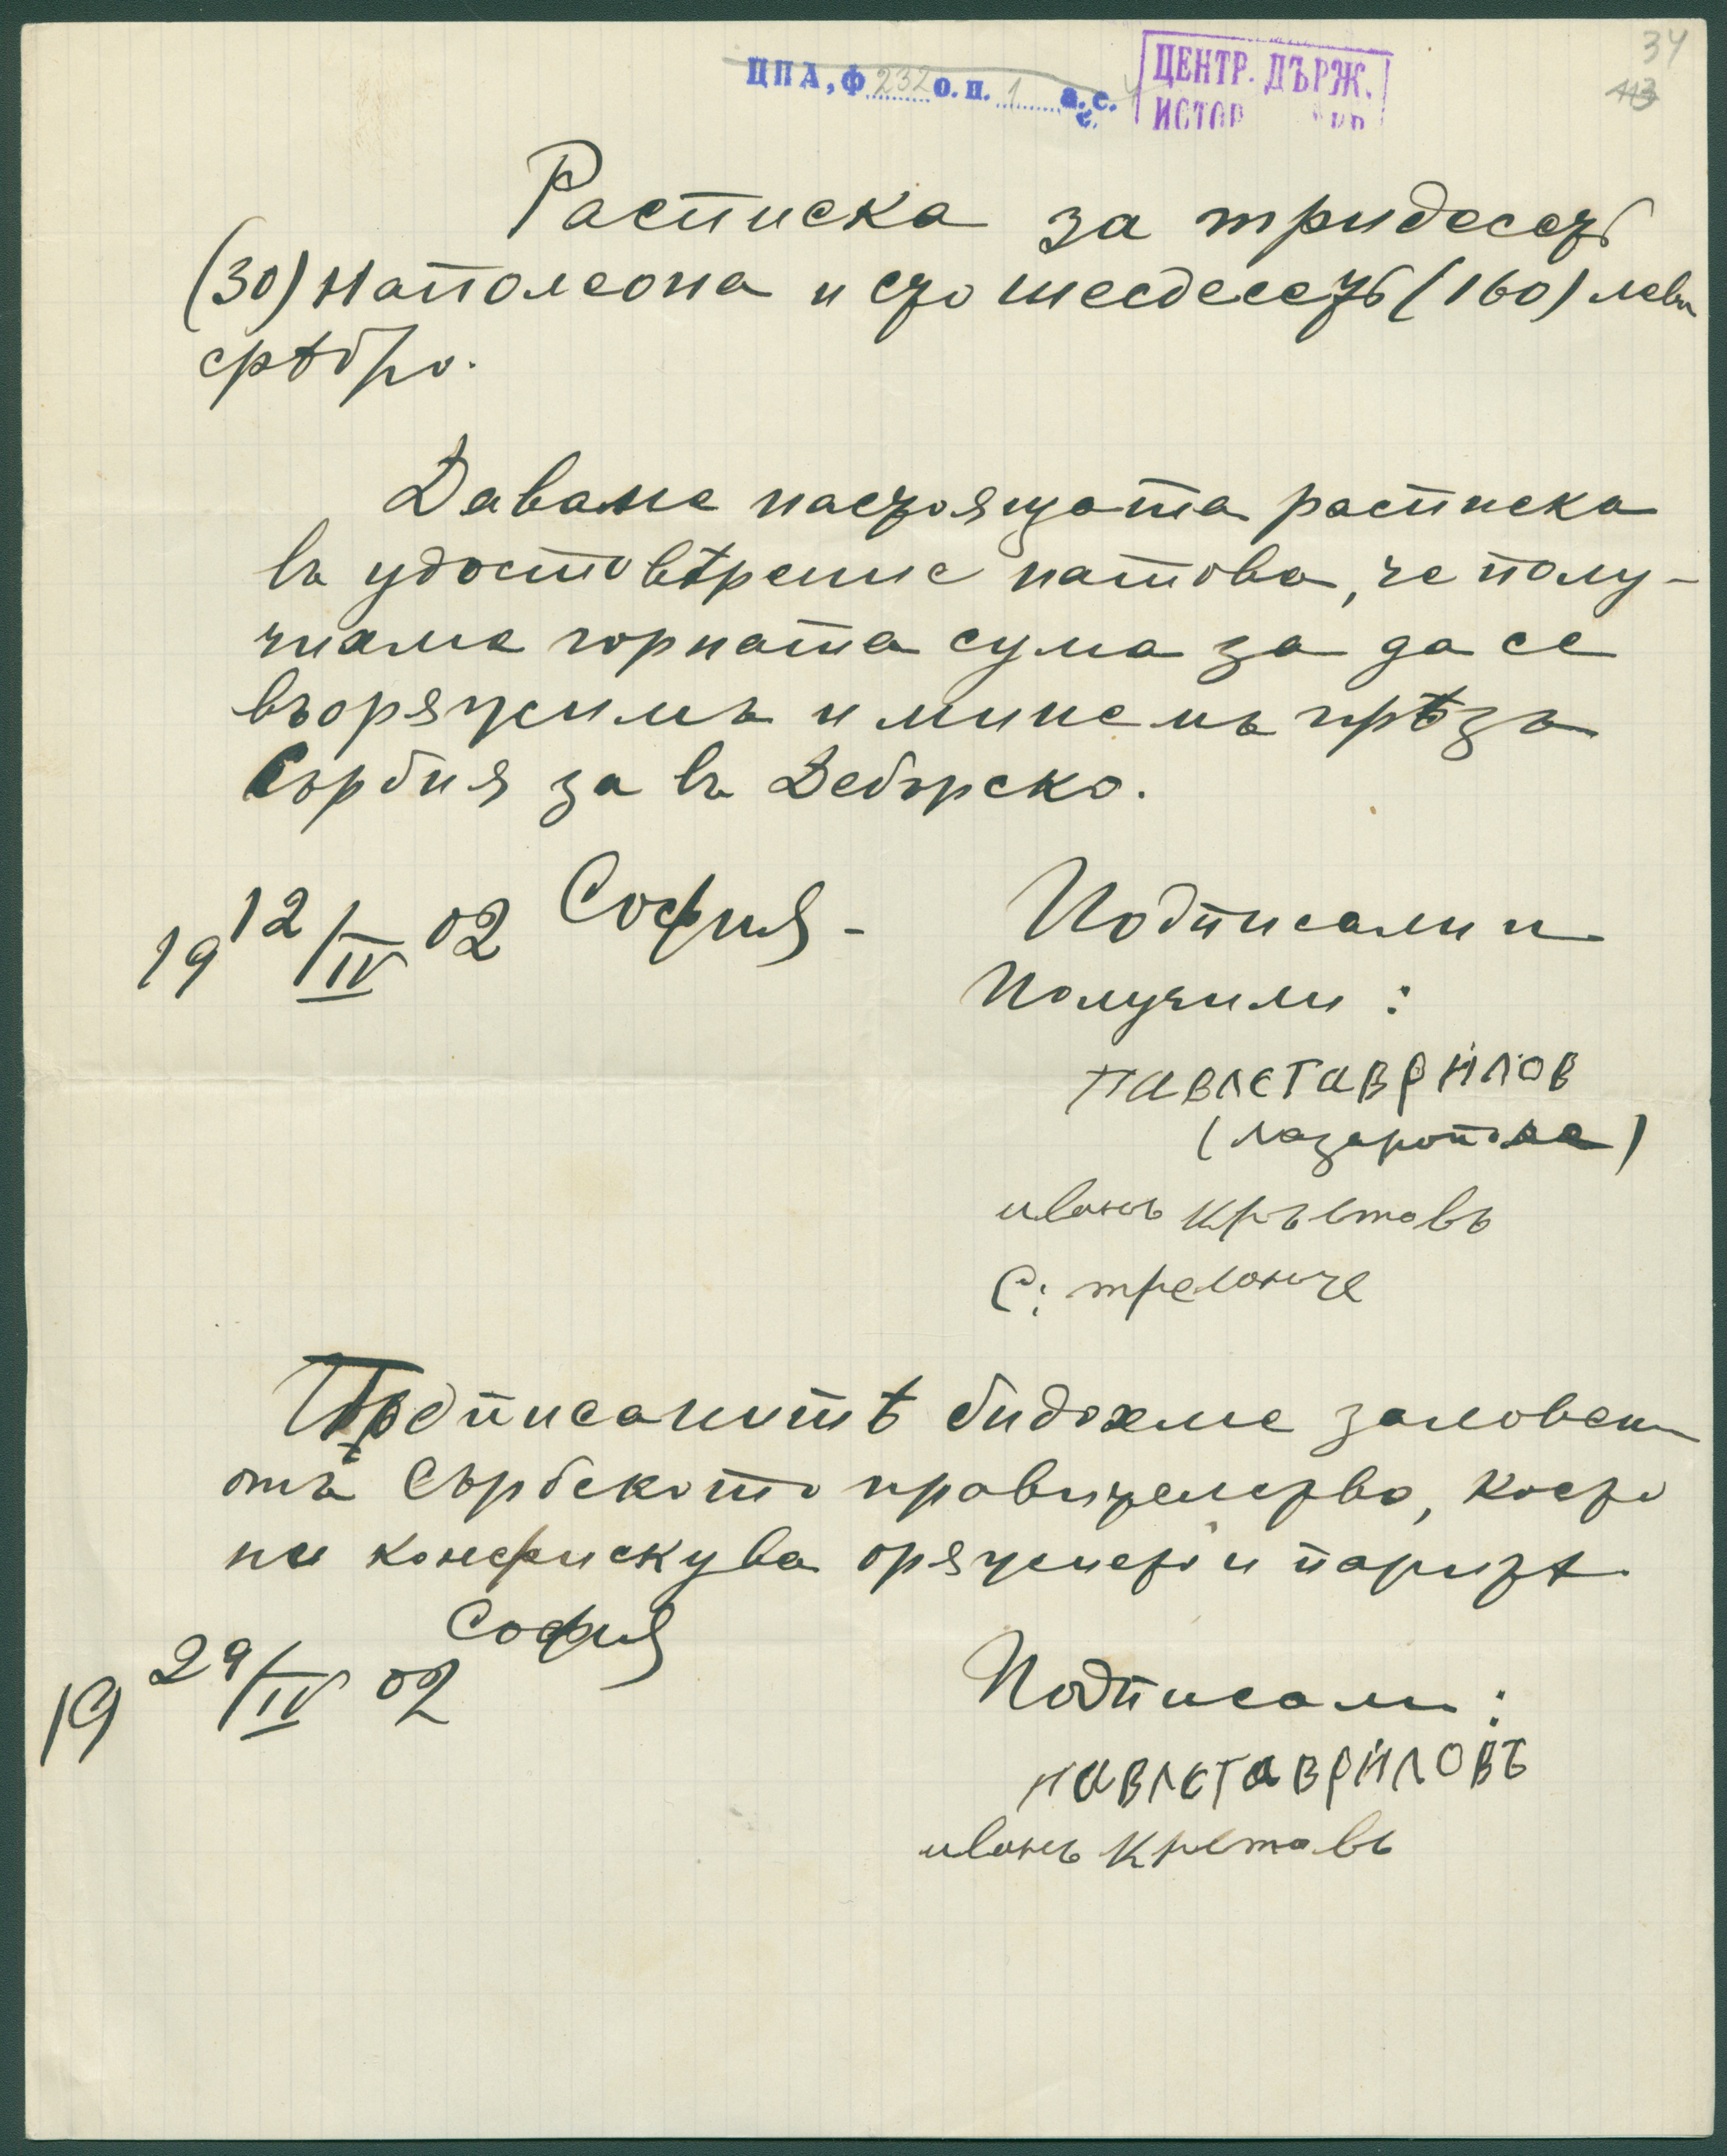 34
ЦПА, ф 232 о.п. 1 а.е.
ЦЕНТР. ДЪРЖ.
ИСТОР
113
Расписка за тридесетъ
(30) наполеона и сто шесдесетъ (160) лева
срѣбро.
Даваме настоящата расписка
въ удостовѣрение натова, че полу-
чихме горната сума за да се
въоряжимъ и минемъ прѣзъ
Сърбия за въ Дебърско.
19 12/IV 02 София -
Подписали и
Получили:
ПАВЛЕГАВРИЛОВ
(Лазарополе)
иванъ Кръстовъ
С: трелонче
Подписанитѣ бидохме заловени
отъ Сърбското правителство, което
ни конфискува оряжието и паритѣ.
София
19 29/IV 02
Подписали:
ПАВЛЕГАВРИЛОВЪ
иванъ Крстовъ